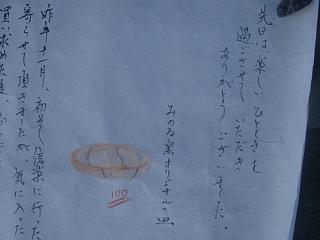 先日は、楽しいひとときを
過ごさせていただき
ありがとうございました。
みのる窯オリジナルの皿
100
昨年十一月、初めて信楽に行った
寄らせて頂きましたが、気に入った
買い求めた後、